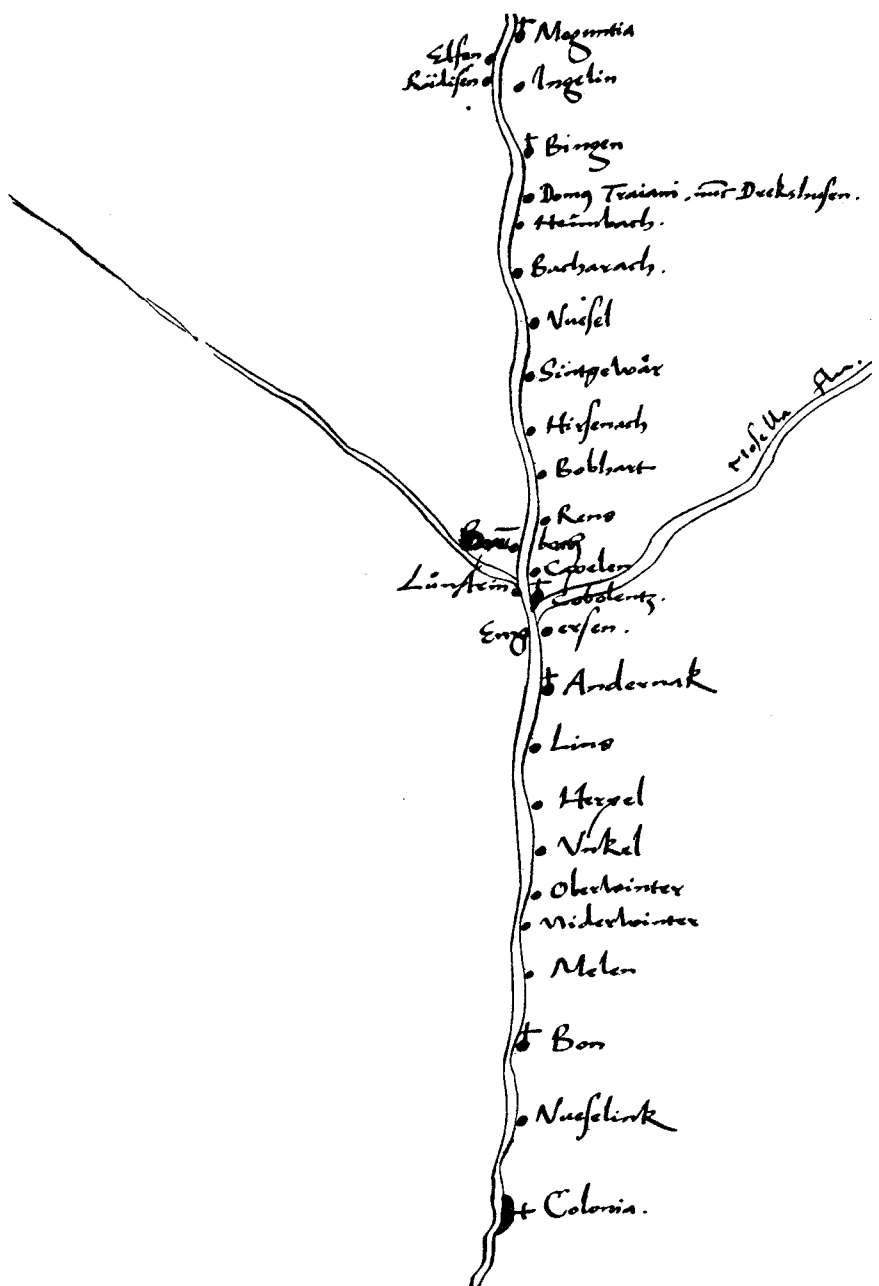 Moguntia
Elfen
Rüdisen
Ingelin
Bingen
Domq Traiani, nūc Deckshusen.
Heimbach.
Bacharach.
Vuesel
Sintgewår
Mosella flu.
Hirsenach
Bobhart
Rens
berg
Capelen
Lůnstein
Cobolentz.
Eng ersen.
Andernak
Lins
Herpel
Vnkel
Oberwinter
Niderwinter
Melen
Bon
Vueselink
Colonia.